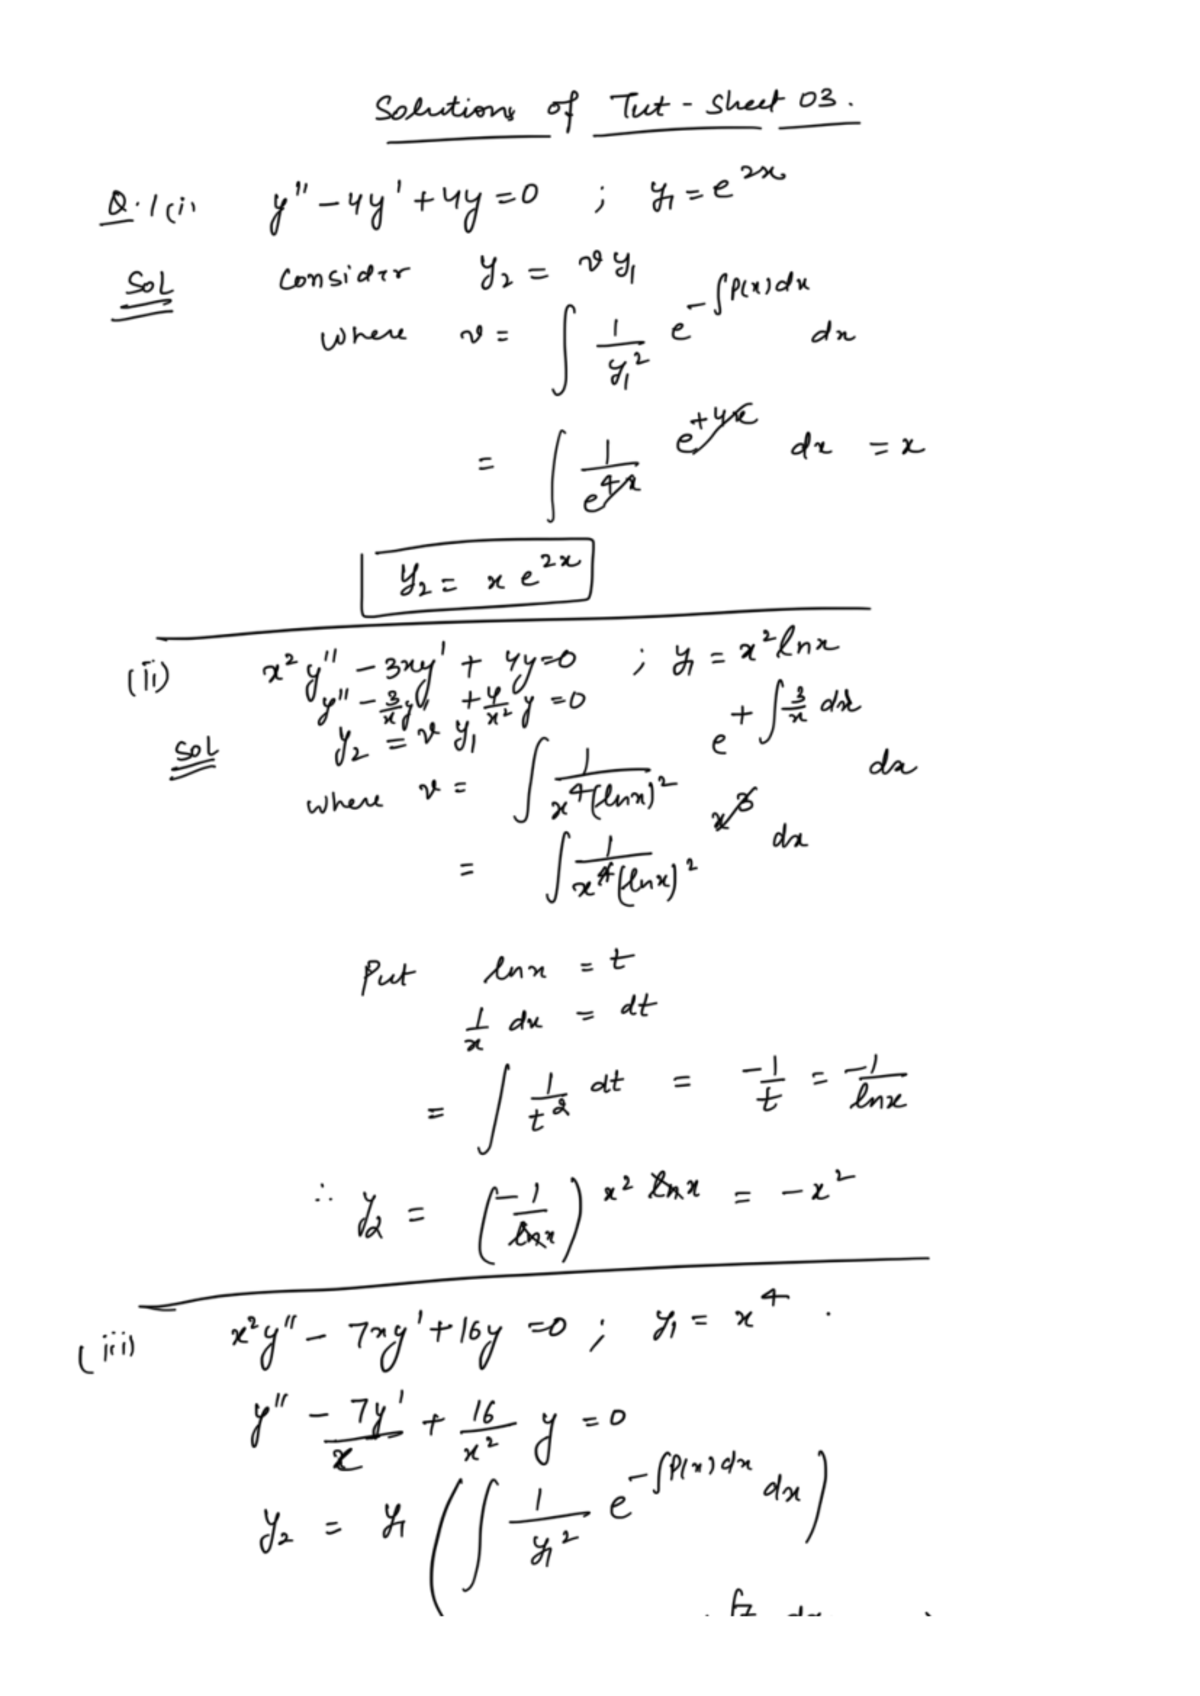 Solutions of Tut - Sheet 03.
Q.1(i) y'' - 4y' + 4y = 0 ; y₁ = e^{2x}
Sol Consider y₂ = v y₁
where v = ∫ 1/y₁² e^{-∫P(x)dx} dx
= ∫ 1/e^{4x} e^{+4x} dx = x
y₂ = x e^{2x}
(ii) x²y'' - 3xy' + 4y = 0 ; y₁ = x² lnx
y'' - 3/x y' + 4/x² y = 0
Sol y₂ = v y₁
where v = ∫ 1/(x⁴(lnx)²) e^{+∫ 3/x dx} dx
= ∫ 1/(x⁴(lnx)²) x³ dx
Put lnx = t
1/x dx = dt
= ∫ 1/t² dt = -1/t = -1/lnx
∴ y₂ = (-1/lnx) x² lnx = -x²
(iii) x²y'' - 7xy' + 16y = 0 ; y₁ = x⁴ .
y'' - 7y'/x + 16/x² y = 0
y₂ = y₁ (∫ 1/y₁² e^{-∫P(x)dx} dx)